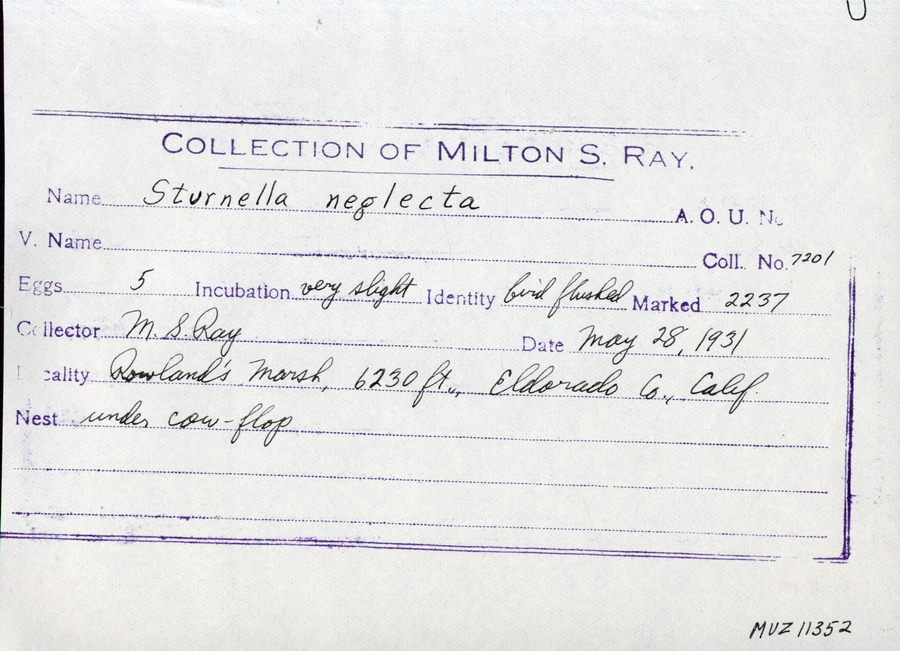 COLLECTION OF MILTON S. RAY.
Name Sturnella neglecta A. O. U. No
V. Name Coll. No. 7201
Eggs 5 Incubation very slight Identity bird flushed Marked 2237
Collector M. S. Ray Date May 28, 1931
Locality Rowland's Marsh, 6230 ft., Eldorado Co., Calif.
Nest under cow-flop
MVZ 11352